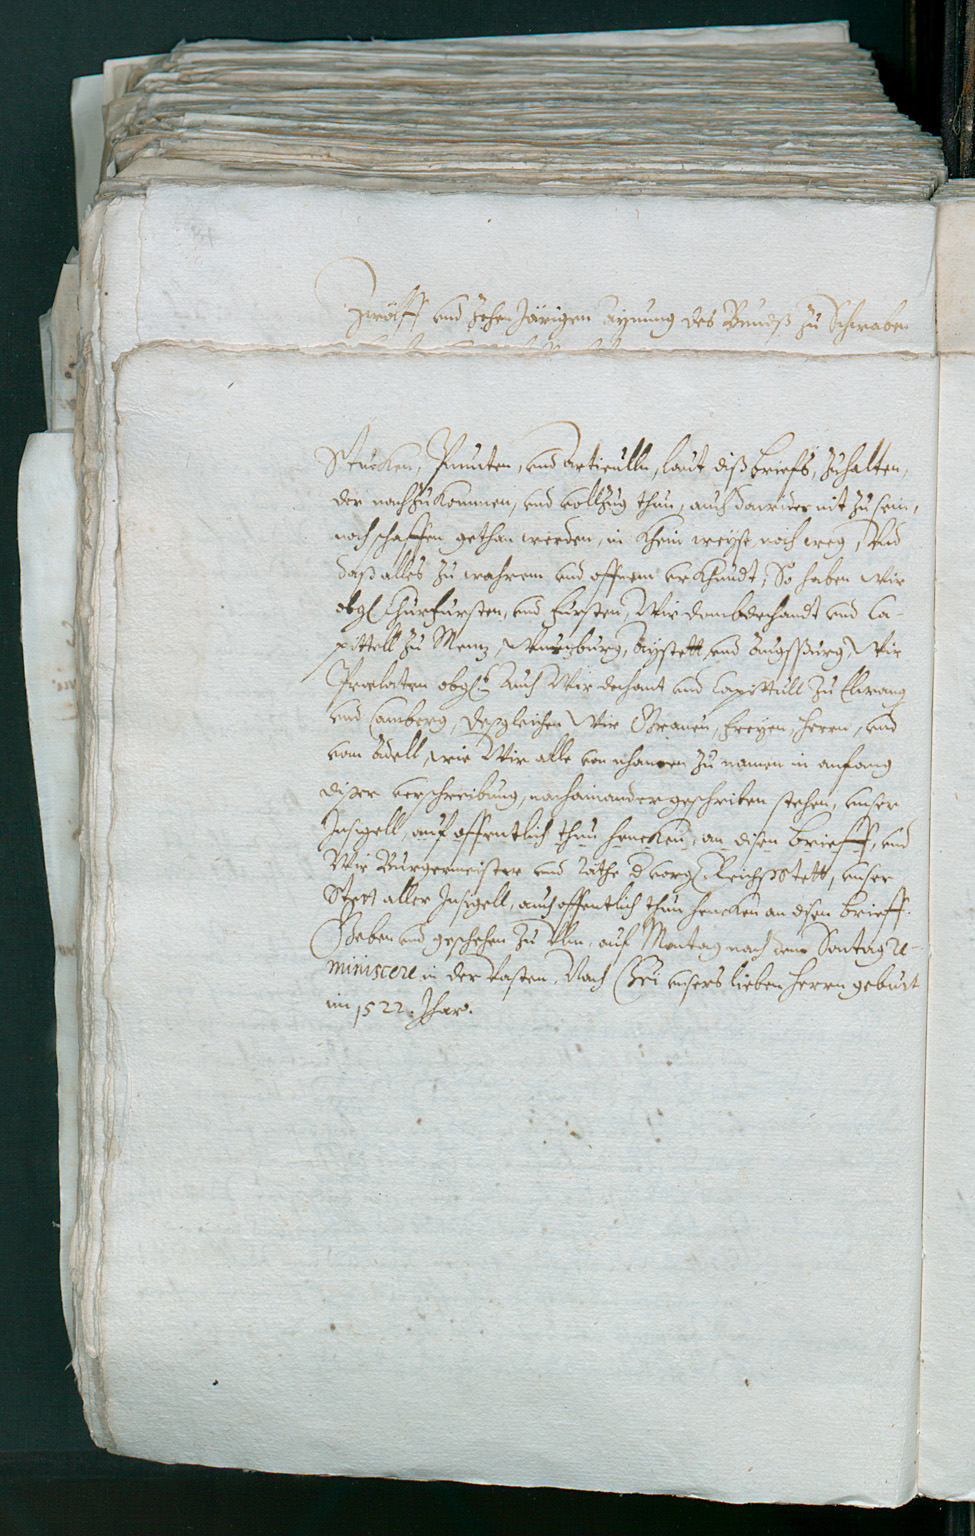 Zwölff und Zehen Järigen Aynung des Bundß zu Schwaben
Stucken, Puncten, und Articulln, laut diß briefs, zuhalten,
der nachzukommen, und vollzug thun, auch darwider nit zu sein,
noch schaffen gethan werden, in khein weyse noch weg, Und
daß alles zu wahrem und offnem urkhundt, So haben Wir
obgl Churfursten, und Fursten, Wir dombdechandt und Ca-
pittell zu Menz, Wurzburg, Aystett, und Augspurg, Wir
Praelaten obgl. Auch Wir dechant und Capittull zu Elwang
und Camberg, Deßgleichen Wir Grauen, Freyen, Herrn, und
vom Adell, wie Wir alle von nhamen zu namen in anfang
diser verschreibung, nachainander geschriben stehen, unser
Insigell, auf offentlich thun hencken, an disen brieff, und
Wir Burgermeister und Räthe d vorgl Reichsstett, unser
Stett aller Insigell, auch offentlich thun hencken an disen brieff.
Geben und geschehen zu Ulm, auf Montag nach dem Sontag Re-
miniscere in der Vasten, Nach Chri unsers lieben Herrn geburt
im 1522. Jhar.